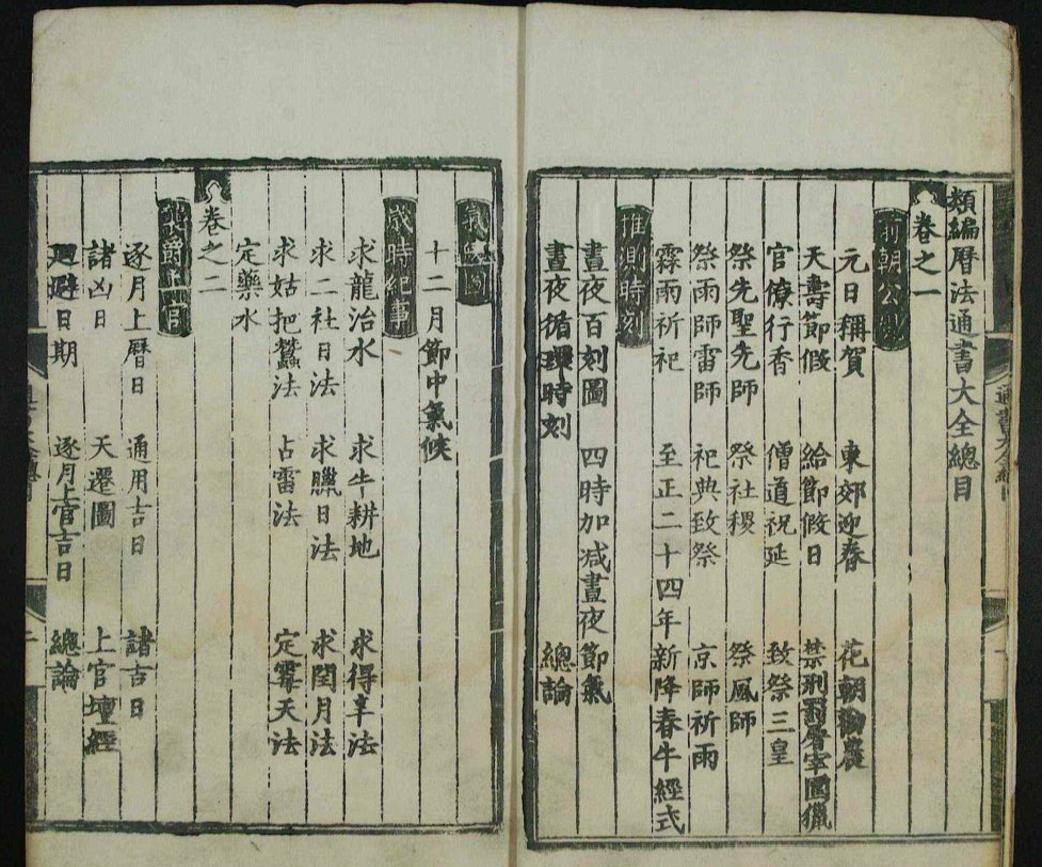 類編曆法通書大全總目
卷之一
前朝公規
元日稱賀 東郊迎春 花朝勸農
天壽節假 給節假日 禁刑罰屠宰圍獵
官僚行香 僧道祝延 致祭三皇
祭先聖先師 祭社稷 祭風師
祭雨師雷師 祀典致祭 京師祈雨
霖雨祈祀 至正二十四年新降春牛經式
推測時刻
晝夜百刻圖 四時加减晝夜節氣
晝夜循環時刻 總論
十二月節中氣候
歲時紀事
求龍治水 求牛耕地 求得辛法
求二社日法 求臘日法 求閏月法
求姑把蠶法 占雷法 定霉天法
定藥水
卷之二
逐月上曆日 通用吉日 諸吉日
諸凶日 天遷圖 上官壇經
廻避日期 逐月上官吉日 總論